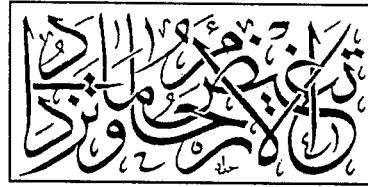 تغيض الارحام وما تزداد